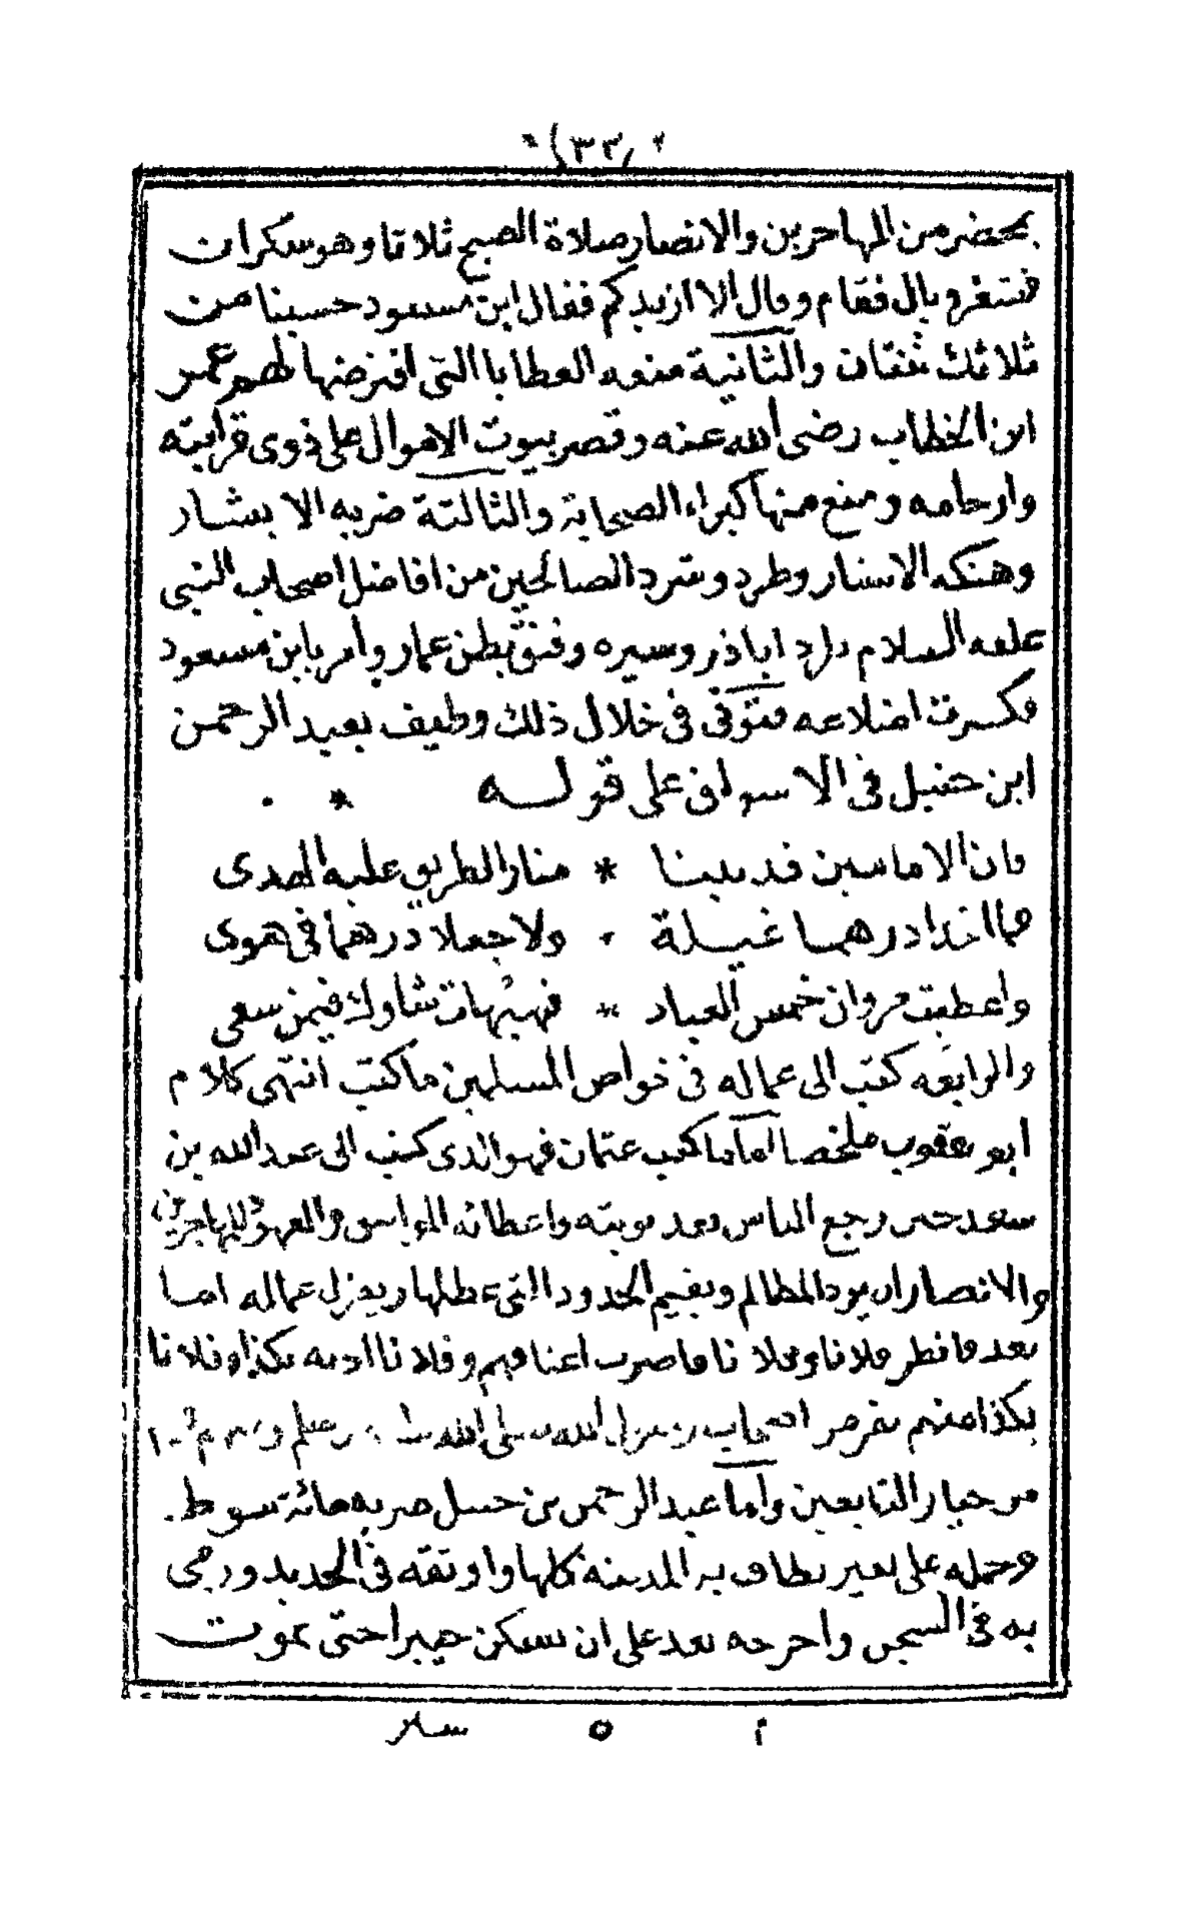 (٣٣)
بمحضر من المهاجرين والانصار صلاة الصبح ثلاثا وهو سكران
فتغرو بال فقام وقال الا ازيدكم فقال ابن مسعود حسبنا من
ثلاثك ثنتان والثانية منعه العطايا التى افترضها لهم عمر
ابن الخطاب رضى الله عنه وقصر بيوت الاموال على ذوى قرابته
وارحامه ومنع منها كبراء الصحابة والثالثة ضربه الابشار
وهتكه الاستار وطرد وشرد الصالحين من افاضل اصحاب النبى
عليه السلام طرد اباذر وسيره وفتق بطن عمار وامر بابن مسعود
فكسرت اضلاعه فتوفى فى خلال ذلك وطيف بعبد الرحمن
ابن حنبل فى الاسواق على قوله *
فان الامامين قد بينا * منار الطريق عليه الهدى
فما اخذا درهما غيلة * ولا جعلا درهما فى هوى
واعطيت مروان خمس العباد * فهيهات شاوك فيمن سعى
والرابعه كتب الى عماله فى خواص المسلمين ما كتب انتهى كلام
ابو يعقوب ملخصا اما ما كتب عثمان فهو الذى كتب الى عبد الله بن
سعد حين رجع الناس بعد توبته واعطائه المواثيق والعهود للمهاجرين
والانصار ان يرد المظالم ويقيم الحدود التى عطلها ويعزل عماله اما
بعد فانظر فلانا وفلانا فاضرب اعناقهم وفلانا ادبه بكذا وفلانا
بكذا منهم نفر من اصحاب رسول الله صلى الله عليه وسلم
من خيار التابعين واما عبد الرحمن بن حنبل ضربه مائة سوط
وحمله على بعير يطاف به المدينة كلها واوثقه فى الحديد ورمى
به فى السجن واخرجه بعد على ان يسكن خيبر حتى يموت
٥